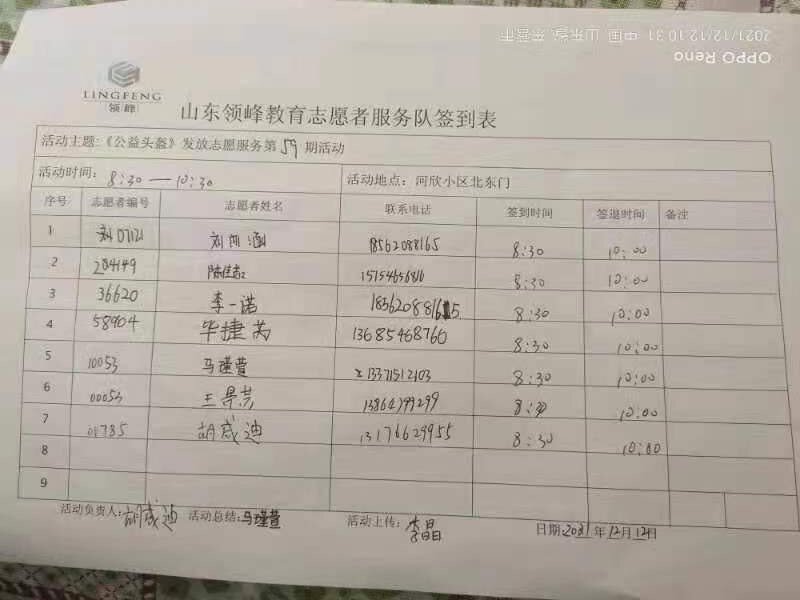 2021/12/12 10:31 中国 山东省 东营市
OPPO Reno
LINGFENG
领峰
山东领峰教育志愿者服务队签到表
活动主题:《公益头盔》发放志愿服务第 59 期活动
活动时间: 8:30 — 10:30 活动地点: 河欣小区北东门
序号 志愿者编号 志愿者姓名 联系电话 签到时间 签退时间 备注
1 18562088165 8:30 10:00
2 284149 8:30 10:00
3 36620 李一诺 8:30 10:00
4 58904 毕捷 13685468760 8:30 10:00
5 10053 马瑾萱 13371512103 8:30 10:00
6 00053 王 8:30 10:00
7 胡宬迪 13176629955 8:30 10:00
8
9
活动负责人: 胡宬迪 活动总结: 马瑾萱 活动上传: 李晶 日期: 2021 年 12月 12日